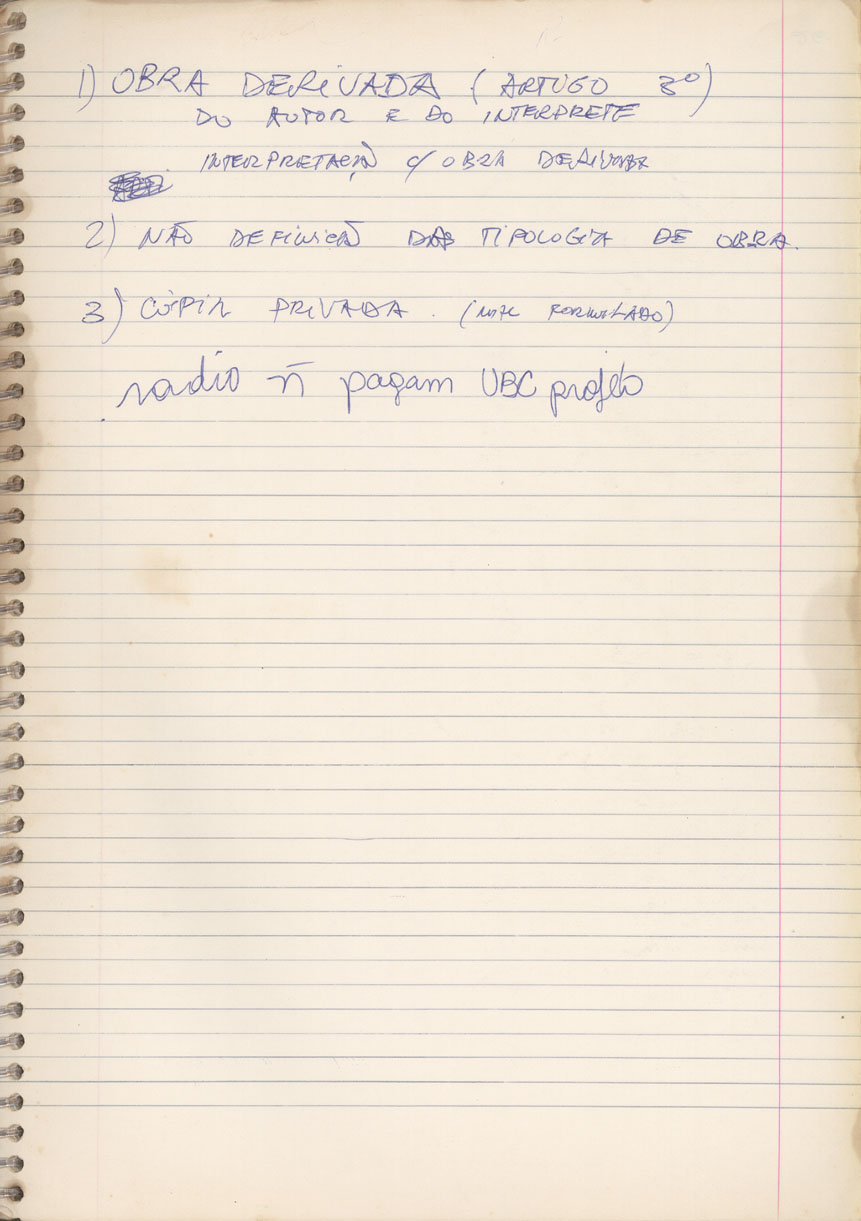 1) OBRA DERIVADA (ARTIGO 3º)
DO AUTOR E DO INTERPRETE
INTERPRETAÇÃO C/ OBRA DERIVADA
2) NÃO DEFINIÇÃO DAS TIPOLOGIA DE OBRA.
3) CÓPIA PRIVADA. (MAL FORMULADO)
radio ñ pagam UBC projeto